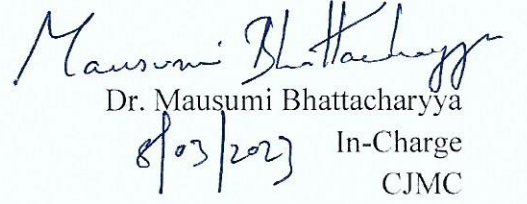 Mausumi Bhattacharyya
Dr. Mausumi Bhattacharyya
8/03/2023 In-Charge
CJMC